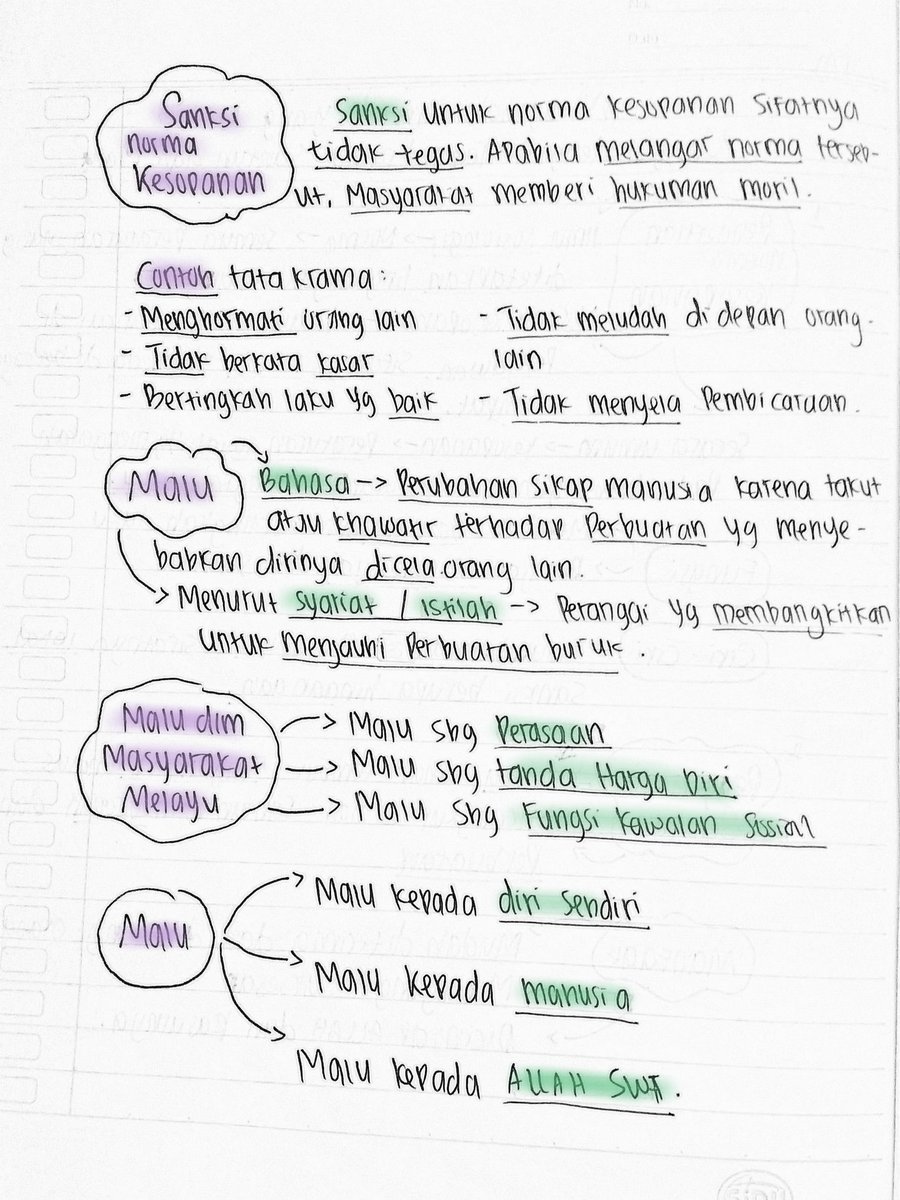 Sanksi
norma
Kesopanan
Sanksi untuk norma kesopanan sifatnya
tidak tegas. Apabila melangar norma terseb-
ut, Masyarakat memberi hukuman moril.
Contoh tata krama:
- Menghormati orang lain
- Tidak berkata kasar
- Bertingkah laku yg baik
- Tidak meludah di depan orang
lain
- Tidak menyela Pembicaraan.
Malu
Bahasa -> Perubahan sikap manusia karena takut
atau khawatir terhadap Perbuatan yg menye-
babkan dirinya dicela orang lain.
-> Menurut syariat / istilah -> Perangai yg membangkitkan
untuk menjauhi Perbuatan buruk.
Malu dlm
Masyarakat
Melayu
-> Malu sbg Perasaan
-> Malu sbg tanda Harga Diri
-> Malu sbg Fungsi Kawalan Sosial
Malu
-> Malu kepada diri sendiri
-> Malu kepada manusia
-> Malu kepada ALLAH SWT.